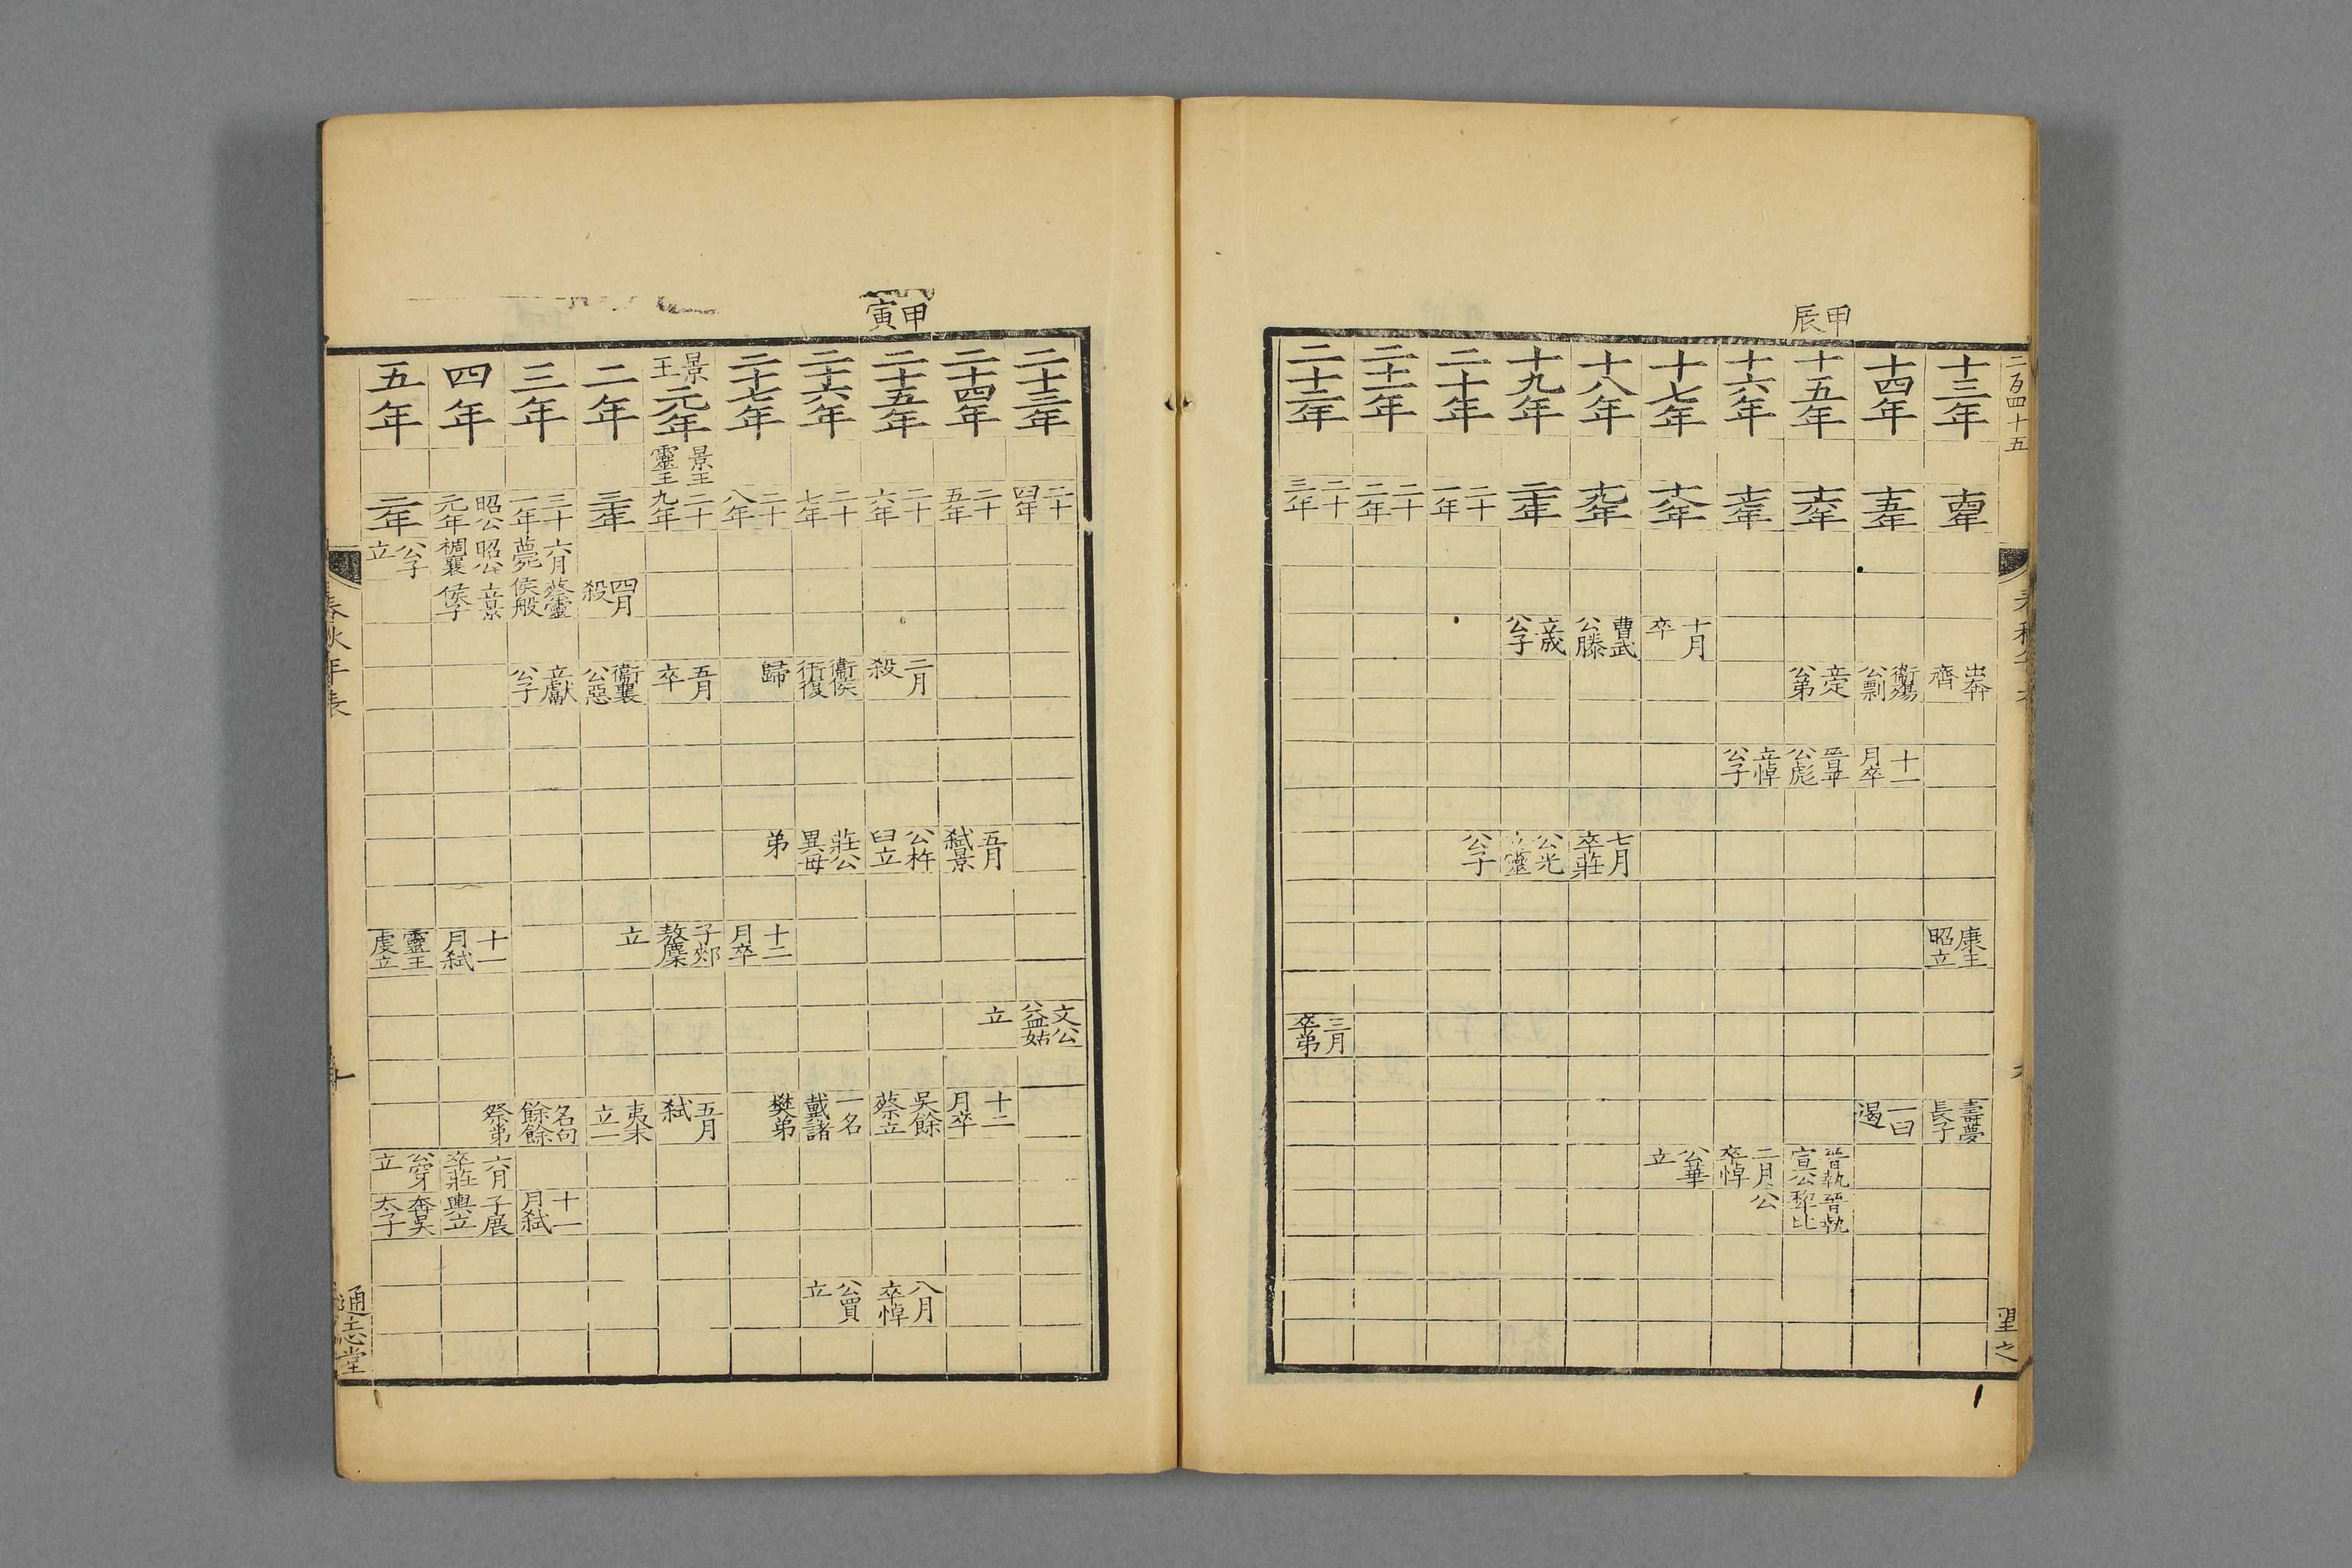 二百四十五
甲辰
十三年
十四年
十五年
十六年
十七年
十八年
十九年
二十年
二十一年
二十二年
十四年
十五年
十六年
十七年
十八年
十九年
二十年
二十一年
二十二年
二十三年
十月卒
曹武公滕
立成公子
出奔齊
衞殤公剽
立定公弟
十一月卒
晉平公彪
立悼公子
七月卒莊
公光立靈
公子
康王昭立
三月卒弟
壽夢長子
一曰遏
晉執宣公
二月卒悼
公華立
晉執犂比
公
望之
甲寅
二十三年
二十四年
二十五年
二十六年
二十七年
景王元年
二年
三年
四年
五年
景王靈王
二十四年
二十五年
二十六年
二十七年
二十八年
二十九年
三十年
三十一年
昭公元年
二年
六月薨
昭公裯襄
公子立
四月殺
蔡靈侯般
立景侯子
二月殺
衞侯衎復
歸
五月卒
衞襄公惡
立獻公子
五月弒景
公杵臼立
莊公異母
弟
十二月卒
子郟敖麇
立
十一月弒
靈王虔立
文公益姑
立
十二月卒
吳餘蔡立
一名戴諸
樊弟
五月弒
夷末立一
名句餘餘
祭弟
六月卒莊
公穿立
十一月弒
子展輿立
奔吳太子
八月卒悼
公買立
春秋年表
十
通志堂